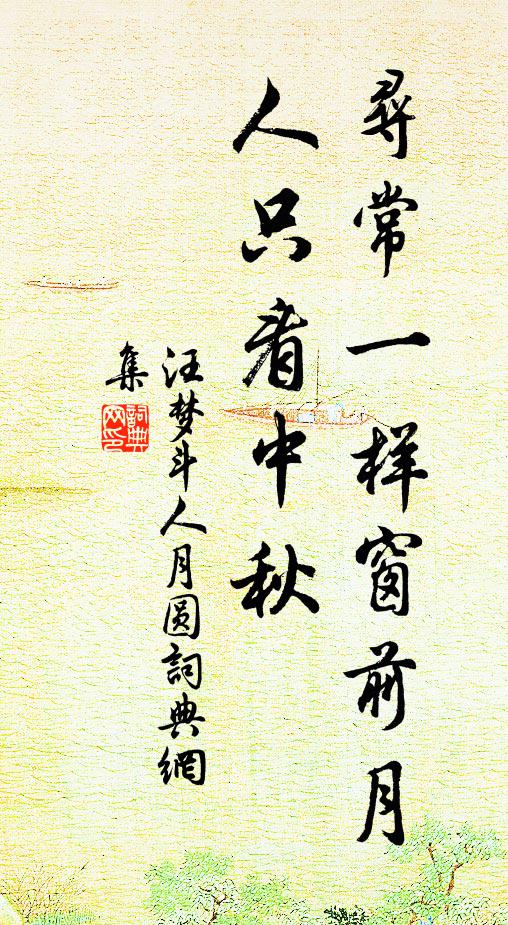 尋常一样窗前月
人只看中秋
汪梦斗人月圆詞典網
集
詞典网印